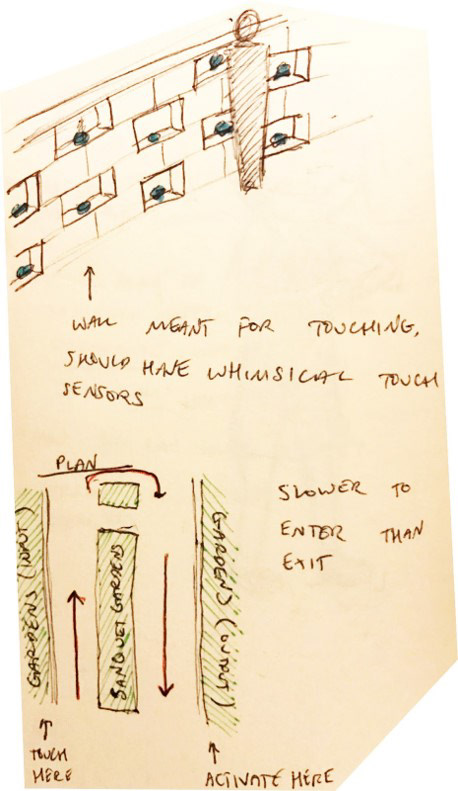 WALL MEANT FOR TOUCHING,
SHOULD HAVE WHIMSICAL TOUCH
SENSORS
PLAN
SLOWER TO
ENTER THAN
EXIT
GARDENS (INPUT)
GARDENS
GARDENS (OUTPUT)
TOUCH
HERE
ACTIVATE HERE